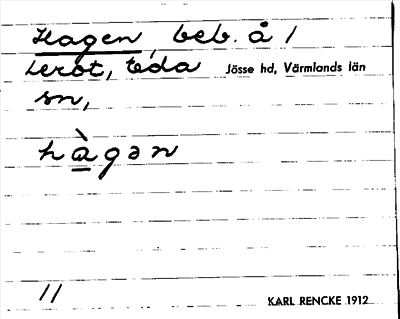 Hagen, beb. å 1
Lerot, Eda Jösse hd, Värmlands län
sn,
hàgən
11
KARL RENCKE 1912